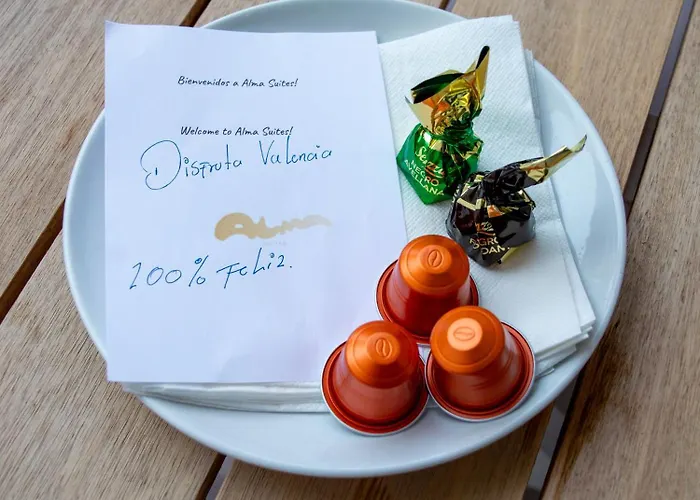 Bienvenidos a Alma Suites!
Welcome to Alma Suites!
Disfruta Valencia
ALMA
100% Feliz.
NEGRO
AVELLANA